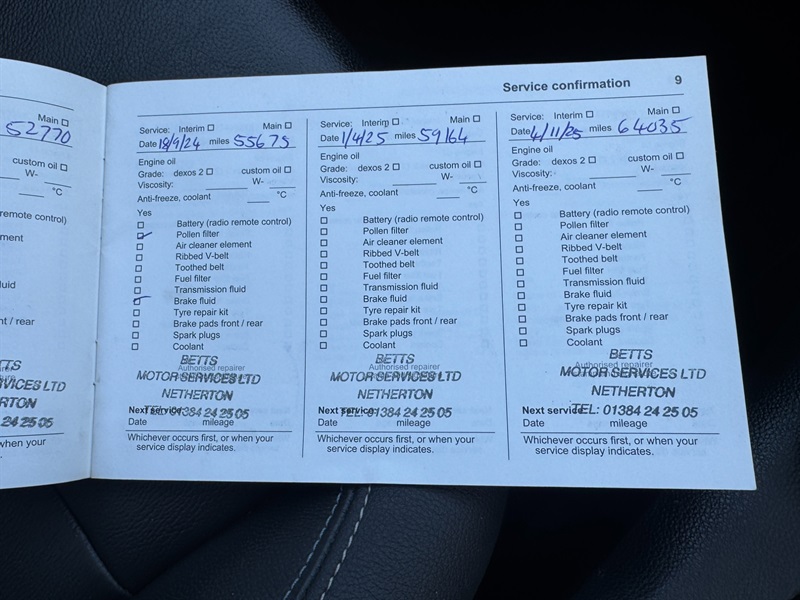 Main
52770
custom oil
W-
°C
remote control)
ement
luid
nt / rear
RTON
24 25 05
when your
Service confirmation 9
Service: Interim Main
Date 18/9/24 miles 55675
Engine oil
Grade: dexos 2 custom oil
Viscosity: W-
Anti-freeze, coolant °C
Yes
Battery (radio remote control)
Pollen filter
Air cleaner element
Ribbed V-belt
Toothed belt
Fuel filter
Transmission fluid
Brake fluid
Tyre repair kit
Brake pads front / rear
Spark plugs
Coolant
BETTS
Authorised repairer
MOTOR SERVICES LTD
NETHERTON
TEL: 01384 24 25 05
Next service:
Date mileage
Whichever occurs first, or when your
service display indicates.
Service: Interim Main
Date 1/4/25 miles 59164
Engine oil
Grade: dexos 2 custom oil
Viscosity: W-
Anti-freeze, coolant °C
Yes
Battery (radio remote control)
Pollen filter
Air cleaner element
Ribbed V-belt
Toothed belt
Fuel filter
Transmission fluid
Brake fluid
Tyre repair kit
Brake pads front / rear
Spark plugs
Coolant
BETTS
Authorised repairer
MOTOR SERVICES LTD
NETHERTON
Next service:
TEL: 01384 24 25 05
Date mileage
Whichever occurs first, or when your
service display indicates.
Service: Interim Main
Date 4/11/25 miles 64035
Engine oil
Grade: dexos 2 custom oil
Viscosity: W-
Anti-freeze, coolant °C
Yes
Battery (radio remote control)
Pollen filter
Air cleaner element
Ribbed V-belt
Toothed belt
Fuel filter
Transmission fluid
Brake fluid
Tyre repair kit
Brake pads front / rear
Spark plugs
Coolant
BETTS
Authorised repairer
MOTOR SERVICES LTD
NETHERTON
Next service:
TEL: 01384 24 25 05
Date mileage
Whichever occurs first, or when your
service display indicates.